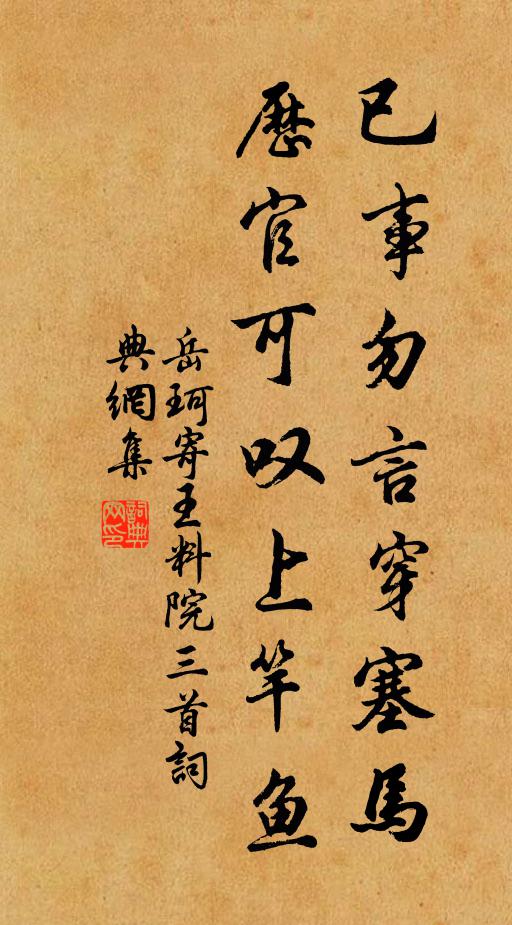 已事勿言穿塞馬
歷官可叹上竿鱼
岳珂寄王料院三首詞
典網集
詞典
网印